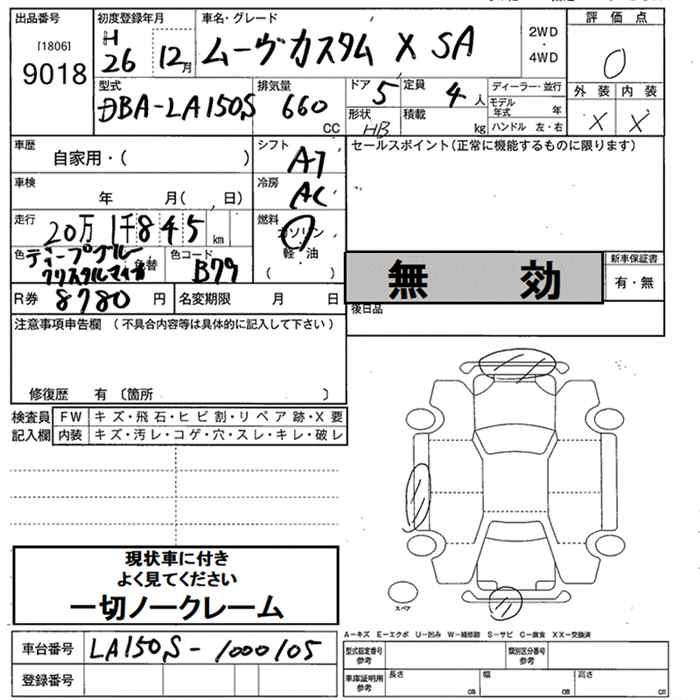 出品番号
[1806]
9018
初度登録年月
H
26 12月
車名・グレード
ムーヴカスタム X SA
2WD
・
4WD
評価点
0
外装 内装
X X
型式
DBA-LA150S
排気量
660
CC
ドア 5
形状
HB
定員
4人
積載
kg
ディーラー・並行
モデル
年式 年
ハンドル 左・右
車歴
自家用・( )
シフト
AT
セールスポイント(正常に機能するものに限ります)
車検
年 月( , 日)
冷房
AC
走行
20万 1千845 km
燃料
ガソリン
軽・油
( )
色
ディープブルー
クリスタルマイカ
色替
色コード
B79
無 効
新車保証書
有・無
R券 8780 円
名変期限 月 日
後日品
注意事項申告欄 (不具合内容等は具体的に記入して下さい)
修復歴 有 〔箇所 〕
検査員
記入欄
FW キズ・飛石・ヒビ割・リペア跡・X要
内装 キズ・汚レ・コゲ・穴・スレ・キレ・破レ
現状車に付き
よく見てください
一切ノークレーム
スペア
A-キズ E-エクボ U-凹み W-補修跡 S-サビ C-腐食 XX-交換済
車台番号 LA150S-1000105
登録番号
型式指定番号
参考
類別区分番号
参考
車庫証明用
参考
長さ cm
幅 cm
高さ cm